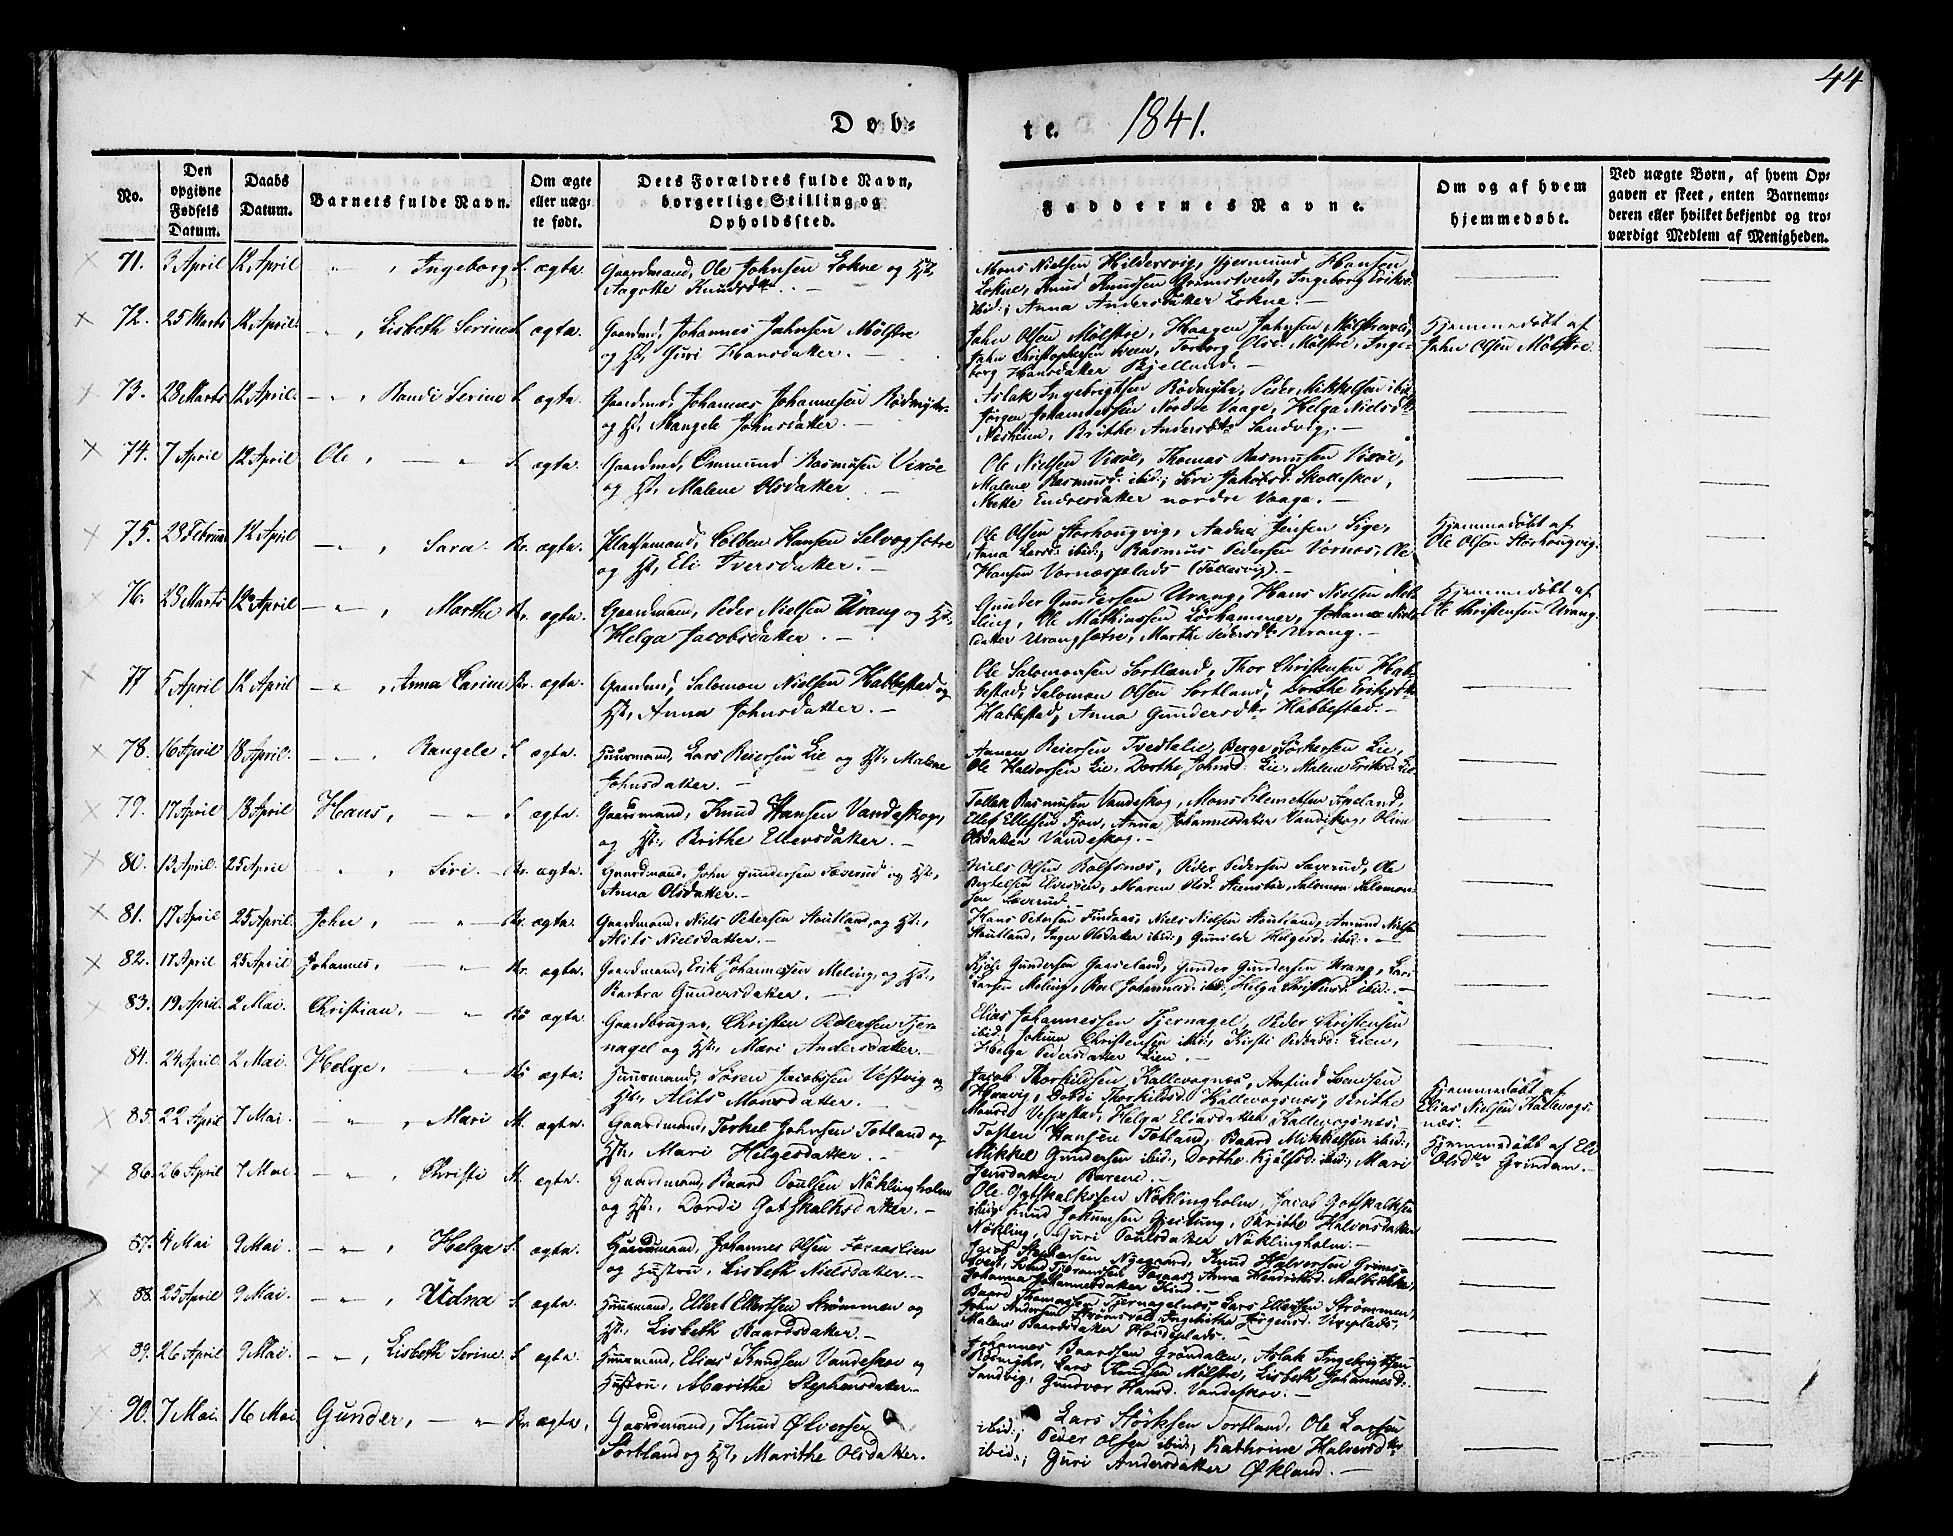 44
Døb=
te. 1841.
No.
Den opgivne Fødsels Datum.
Daabs Datum.
Barnets fulde Navn.
Om ægte eller uæg-te født.
Dets Forældres fulde Navn, borgerlige Stilling og Opholdssted.
Faddernes Navne.
Om og af hvem hjemmedøbt.
Ved uægte Børn, af hvem Op-gaven er skeet, enten Barnemo-deren eller hvilket bekjendt og tro-værdigt Medlem af Menigheden.
71. 3 April 12 April — " , Ingeborg S. ægta. Gaardmand, Ole Johnsen Lokne og Hst,
Aagotte Knudsdtr. —
Mons Nielsen Hildersvig, Gjermund Hansen
Lokne, Knud Knudsen Grimstvedt, Ingeborg Eriksd.
ibid:, Anna Andersdatter Lokne. —
72. 25 Marts 12 April. — " , Lisbeth Serine S. ægta. Gaardmd, Johannes Johnsen Mølstre
og Hst, Guri Hansdatter. —
John Olsen Mølstre, Haagen Johnsen Mølstre,
John Christophersen Sveen, Torborg Olsd. Mølstre, Inge-
borg Hansdatter Bjelland. —
Hjemmedøbt af
John Olsen Mølstre.
73. 28 Marts 12 April. — " , Randi Serine S. ægta. Gaardmd, Johannes Johannesen Rødmyhr
og Hst, Rangele Johnsdatter. —
Aslak Ingebrigtsen Rødmyhr, Peder Mikkelsen ibid,
Jørgen Johannessen Nordre Vaage, Helga Nielsdtr
Næsheim, Brithe Andersdtr Sandvig. —
74. 7 April 12 April Ole , — " S. ægta Gaardmd, Ommund Rasmusen Vixøe
og Hst, Malene Olsdatter. —
Ole Nielsen Vixøe, Thomas Rasmusen Vixøe,
Malene Rasmusd. ibid:, Siri Jakobsd. Skotteskov,
Mette Endresdatter nordre Vaage. —
75. 23 Februar 12 April — " , Sara. Br. ægta. Pladsmand, Colben Hansen Selvogsætre
og Hst, Eli Iversdatter. —
Ole Olsen Storhougvig, Andres Jensen Sige,
Anna Larsd: ibid:, Rasmus Pedersen Vornæs, Ole
Hansen Vornæsplads (Tollesvig). —
Hjemmedøbt af
Ole Olsen Storhougvig.
76. 23 Marts 12 April — " , Marthe Br. ægta. Gaardmand, Peder Nielsen Urang og Hst,
Helga Jacobsdatter. —
Gunder Gundersen Urang, Hans Nielsen Me-
ling, Ole Mathiassen Lørhammer, Johanna Niels-
datter Urangsætre, Marthe Pedersdtr Urang. —
Hjemmedøbt af
Ole Christensen Urang.
77 5 April 12 April — " , Anna Carine Br. ægta. Gaardmd, Salomon Nielsen Habbestad og
Hst, Anna Johnsdatter. —
Ole Salomonsen Tortland, Thor Christensen Hab-
bestad, Salomon Olsen Tortland, Dorthe Eriksdtr
Habbestad, Anna Gundersdtr Habbestad. —
78. 16 April 18 April. — " , Rangele S. ægta. Huusmand, Lars Reiersen Lie og Hst, Malene
Johnsdatter. —
Reiersen Tvedtelie, Berge Størkersen Lie,
Ole Haldorsen Lie, Dorthe Johnsd: Lie, Malene Eriksd: Lie
79. 17 April 18 April Hans, — " S ægta. Gaardmand, Knud Hansen Vandeskog,
og Hst, Brithe Ellevsdatter. —
Tollak Rasmusen Vandeskog, Mons Clemetsen Axeland,
Ellef Ellefsen Fjon, Anna Johannesdatter Vandeskog,
Olsdatter Vandeskog. —
80. 13 April. 25 April " , Siri. Br. ægta. Gaardmand, John Gundersen Sæverud og Hst,
Anna Olsdatter. —
Niels Olsen Rolfsnæs, Peder Pedersen Saverud, Ole
Bertelsen Elvesøen, Maren Olsd. Steensbøe, Salomon Salomon-
sen Saverud. —
81. 17 April 25 April. John, — " — Br. ægta. Gaardmand, Niels Petersen Stoutland, og Hst,
Alits Nielsdatter. —
Hans Petersen Findaas, Niels Nielsen Stoutland, Amund Nielsen
Stoutland, Inger Olsdatter ibid:, Gunilde Helgesd. ibid:. —
82. 17 April 25 April. Johannes, — " Br. ægta. Gaardmand, Erik Johannesen Meling, og Hst,
Barbra Gundersdatter. —
Gundersen Gaaseland, Gunder Gundersen Urang, Lars
Larsen Meling, Johannesd: ibid:, Helga Christensd: ibid:. —
83. 19 April. 2 Mai. Christian, — " Bø ægta. Gaardbruger, Christen Pedersen Tjer-
nagel og Hst, Mari Andersdatter. —
Elias Johannessen Tjernagel, Peder Christensen
ibid:, Jokum Christensen ibid:, Kirsti Pedersd: Lien,
Helga Pedersdatter Lien. —
84. 24 April. 2 Mai. Helge, — " Bø ægta. Huusmand, Søren Jacobsen Vestvig og
Hst, Alits Monsdatter. —
Jacob Thorkildsen Kallevognæs, Arfind Svensen
Haavig, Dordi Thorkildsd. Kallevognæs, Brithe
Monsd. , Helga Eliasdatter Kallevognæs. —
Hjemmedøbt af
Elias Nielsen Kallevogs-
næs. —
85. 22 April 7 Mai. — " , Mari M. ægta. Gaardmand, Torkel Johnsen Totland og
Hst, Mari Helgesdatter. —
Tosten Hansen Totland, Baard Mikkelsen ibid:,
Mikkel Gundersen ibid:, Dorthe Kjølsd: ibid:, Mari
Jensdatter . —
Hjemmedøbt af Eli
Olsdtr Grindem. —
86. 26 April 7 Mai — " , Christi M. ægta. Gaardmand, Baard Poulsen Nøklingholm
og Hst, Dordi Gotskalksdatter. —
Ole Gotskalksen Nøklingholm, Jacob Gotskalksen
ibid, Knud Jokumsen Gjeitung, Brithe Halvorsdatter
Nøkling, Guri Poulsdatter Nøklingholm. —
87. 4 Mai 9 Mai. — " , Helga S. ægta. Huusmand, Johannes Olsen Foraaslien
og Hustru, Lisbeth Nielsdatter. —
Jacob Stephensen Nygaard, Knud Halvorsen Grims-
tvedt, Foraas, Anna
Johanna Johannesdatter Hind. —
88. 25 April 9 Mai. — " , Udna S. ægta. Huusmand, Ellert Ellertsen Strømmen og
Hst, Lisbeth Baardsdatter. —
Baard Thomasen Tjernagelnæs, Lars Ellertsen Strømmen,
John Andersen
Malene Baardsdatter . —
89. 26 April 9 Mai. — " , Lisbeth Serine. S. ægta Huusmand, Elias Knudsen Vandeskov og
Hustru, Marithe Stephensdatter. —
Johannes Baardsen Grøndalen, Aslak Ingebrigtsen
Rødmyhr, Lars Knudsen Mølstre, Lisbeth Johannesd:
Sandvig, Gundvor Hansd. Vandeskov. —
90. 7 Mai 16 Mai Gunder, — " Br. ægta, Gaardmand, Knud Ølversen
Tortland og Hst, Marithe Olsdatter.
Lars Størksen Tortland, Ole Larsen
ibid:, Peder Olsen ibid:, Kathrine Halvorsdtr
ibid:, Guri Andersdatter Økland. —